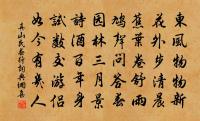 東風物物新
花外步清晨
蕉葉卷舒雨
鳩聲問答春
園林三月景
詩酒百年身
試數交游侶
如今有幾人
真山民春行詩